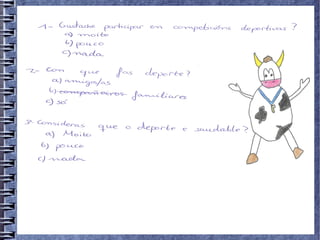 1- Gustache participar en competicións deportivas?
a) moito
b) pouco
c) nada
2- Con que fas deporte?
a) amigos/as
b) compañeiros familiares
c) só
3- Consideras que o deporte é saudable?
a) Moito
b) pouco
c) nada